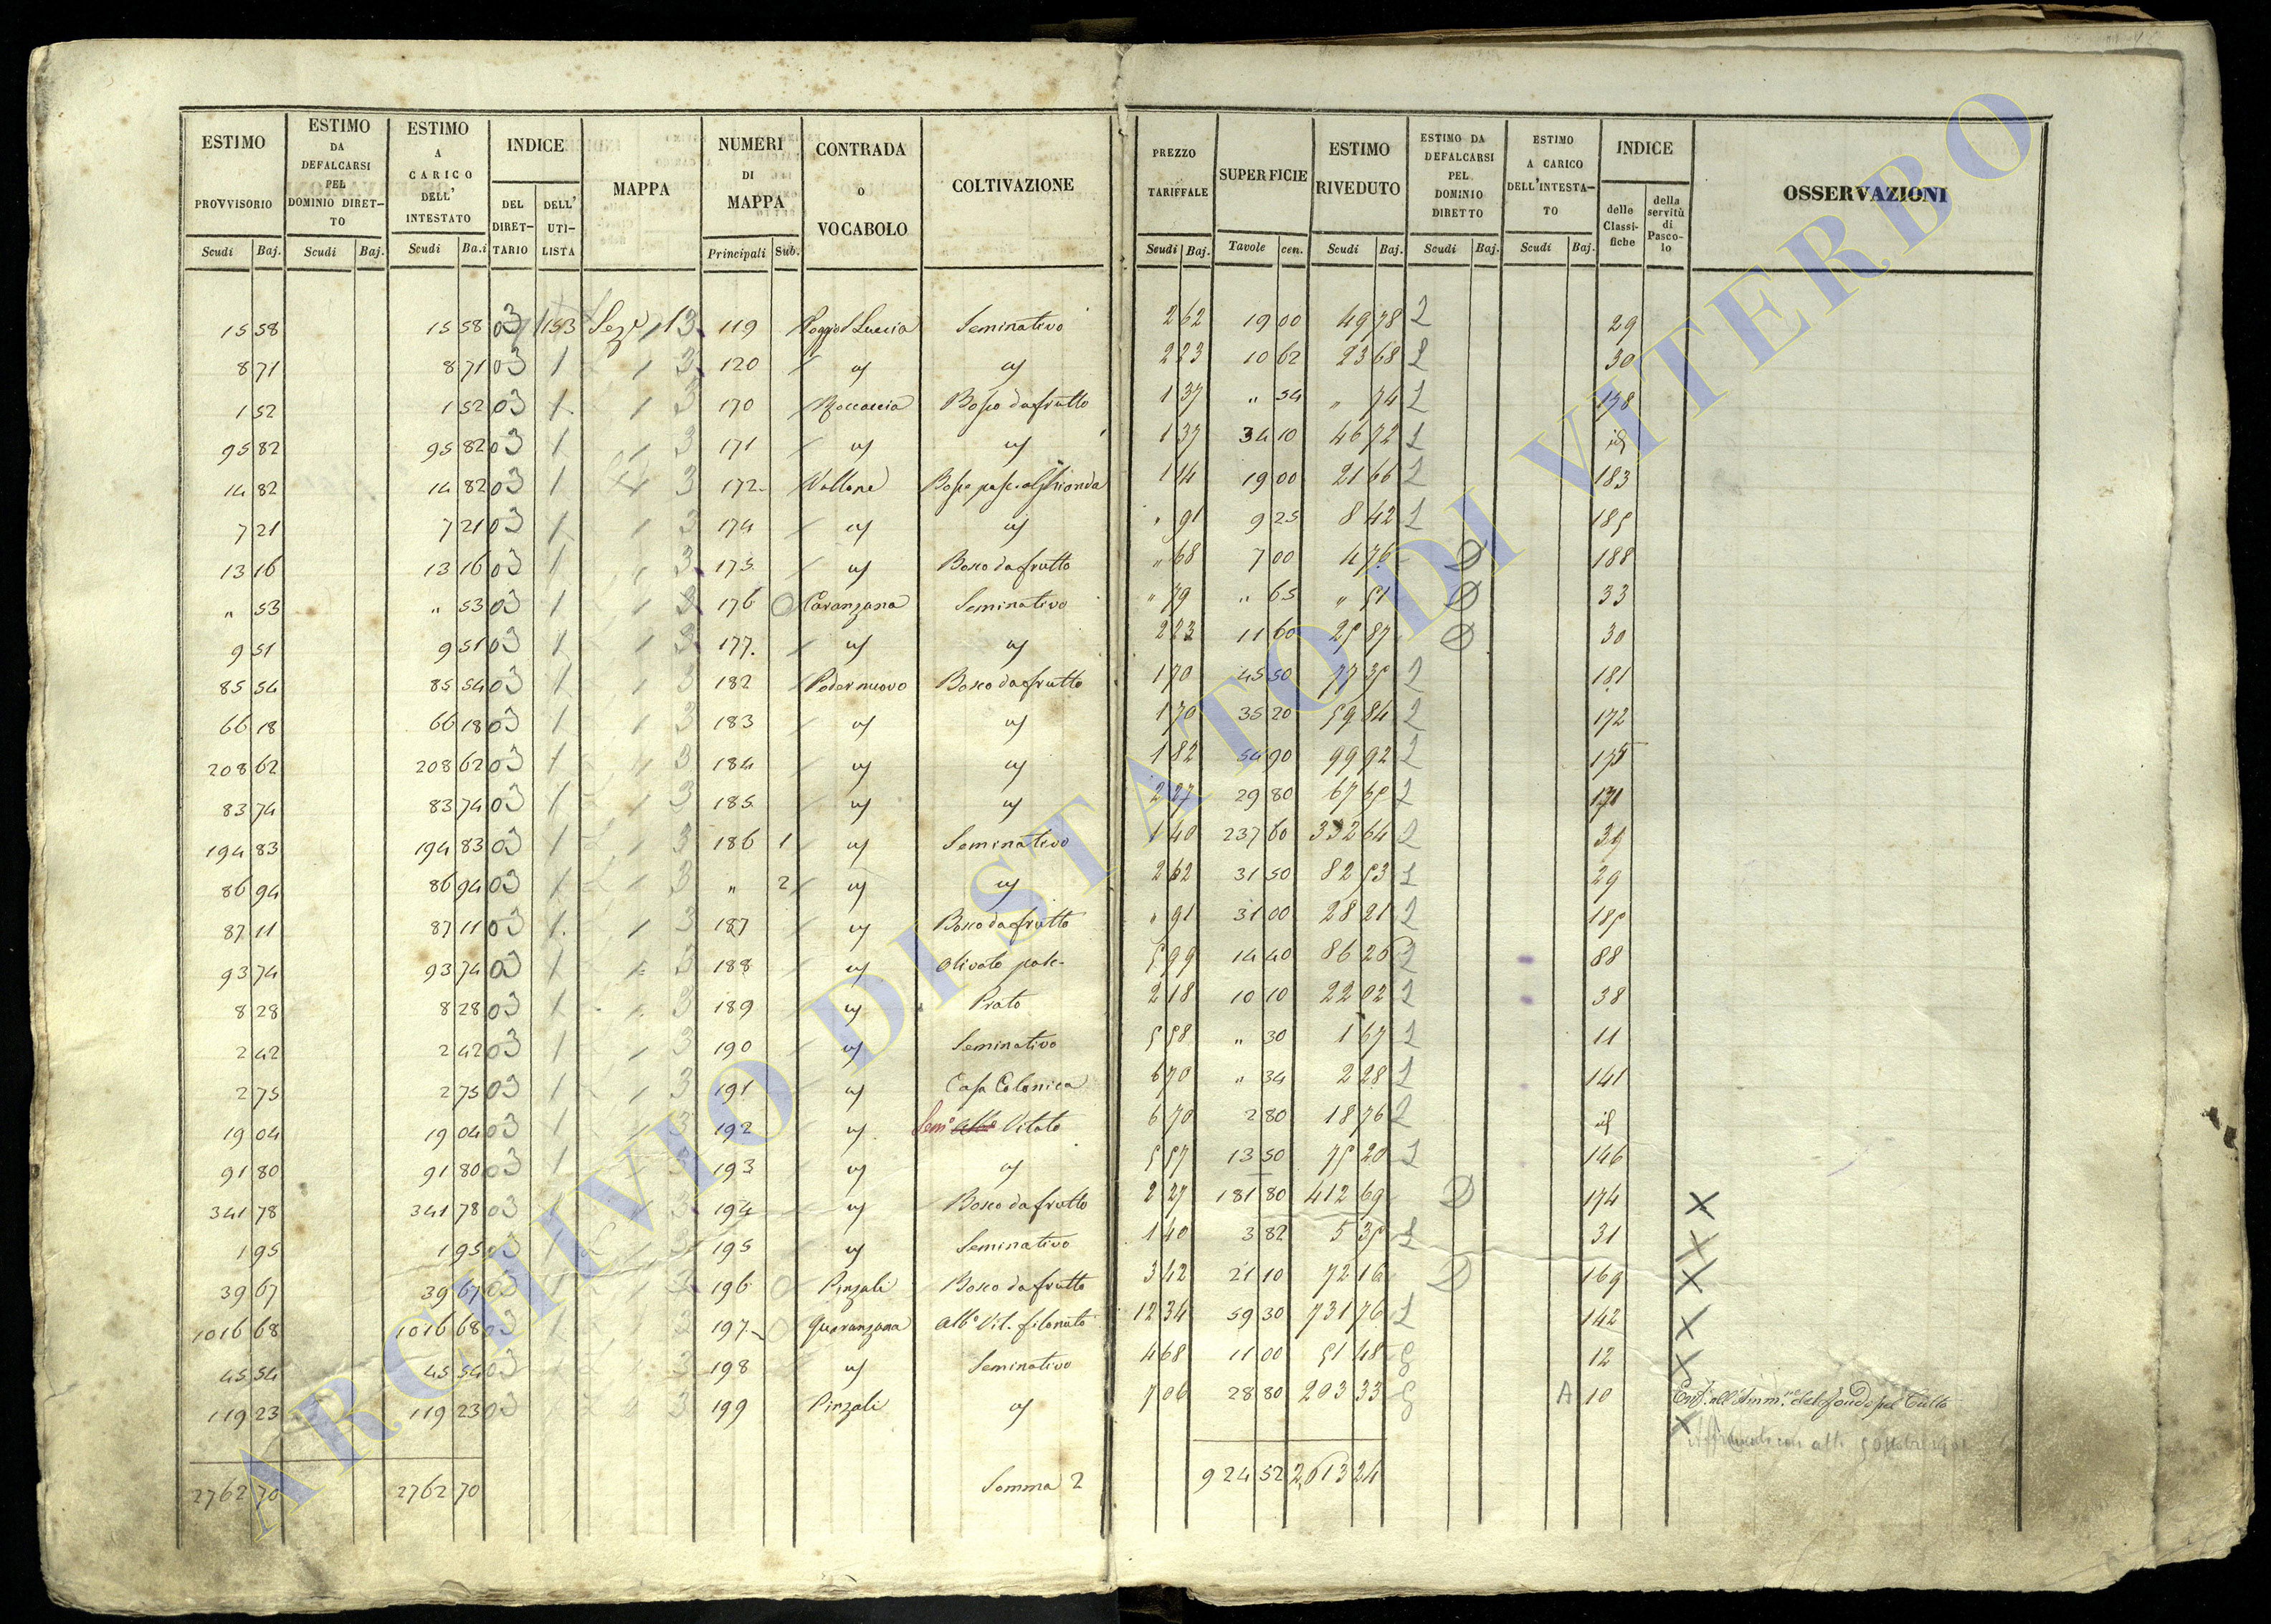 ESTIMO PROVVISORIO Scudi Baj.
ESTIMO DA DEFALCARSI PEL DOMINIO DIRET- TO Scudi Baj.
ESTIMO A CARICO DELL' INTESTATO Scudi Ba.i
INDICE DEL DIRET- TARIO DELL' UTI- LISTA
MAPPA
NUMERI DI MAPPA Principali Sub.
CONTRADA o VOCABOLO
COLTIVAZIONE
PREZZO TARIFFALE Scudi Baj.
SUPERFICIE Tavole cen.
ESTIMO RIVEDUTO Scudi Baj.
ESTIMO DA DEFALCARSI PEL DOMINIO DIRETTO Scudi Baj.
ESTIMO A CARICO DELL'INTESTA- TO Scudi Baj.
INDICE delle Classi- fiche della servitù di Pasco- lo
OSSERVAZIONI
15 58 15 58 03 153 Sez. 1 3 119 Seminativo 2 62 19 00 49 78 29
8 71 8 71 03 1 1 3 120 2 23 10 62 23 68 30
1 52 1 52 03 1 1 3 170 Roccaccia Bosco da frutto 1 37 " 54 " 74 178
95 82 95 82 03 1 1 3 171 1 37 34 10 46 72 id
14 82 14 82 03 1 3 172 Vallone 1 14 19 00 21 66 183
7 21 7 21 03 1 1 3 174 " 91 9 25 8 42 185
13 16 13 16 03 1 1 3 175 Bosco da frutto " 68 7 00 4 76 188
" 53 " 53 03 1 1 3 176 Caranzana Seminativo " 79 " 65 " 51 33
9 51 9 51 03 1 1 3 177 2 23 11 60 25 87 30
85 54 85 54 03 1 1 3 182 Poder nuovo Bosco da frutto 1 70 45 50 77 35 181
66 18 66 18 03 1 1 3 183 1 70 35 20 59 84 172
208 62 208 62 03 1 1 3 184 1 82 54 90 99 92 175
83 74 83 74 03 1 1 3 185 2 27 29 80 67 65 171
194 83 194 83 03 1 1 3 186 1 Seminativo 1 40 237 60 332 64 39
86 94 86 94 03 1 1 3 " 2 2 62 31 50 82 53 29
87 11 87 11 03 1 1 3 187 Bosco da frutto " 91 31 00 28 21 185
93 74 93 74 03 1 1 3 188 Olivato pasc. 5 99 14 40 86 26 88
8 28 8 28 03 1 1 3 189 Prato 2 18 10 10 22 02 38
2 42 2 42 03 1 1 3 190 Seminativo 5 58 " 30 1 67 11
2 75 2 75 03 1 1 3 191 Casa Colonica 6 70 " 34 2 28 141
19 04 19 04 03 1 1 3 192 Sem.o Vitato 6 70 2 80 18 76 id
91 80 91 80 03 1 1 3 193 5 57 13 50 75 20 146
341 78 341 78 03 1 1 3 194 Bosco da frutto 2 27 181 80 412 69 174 X
1 95 1 95 03 1 1 3 195 Seminativo 1 40 3 82 5 35 31 X
39 67 39 67 03 1 1 3 196 Pinzali Bosco da frutto 3 42 21 10 72 16 169 X
1016 68 1016 68 03 1 1 3 197 Quaranzana Alb.o Vit. filonato 12 34 59 30 731 76 142 X
45 54 45 54 03 1 3 198 Seminativo 4 68 11 00 51 48 12 X
119 23 119 23 03 3 199 Pinzali 7 06 28 80 203 33 A 10 all'Amm.ne del fondo pel Culto
X
2762 70 2762 70 Somma 2 924 52 2,613 24
ARCHIVIO DI STATO DI VITERBO